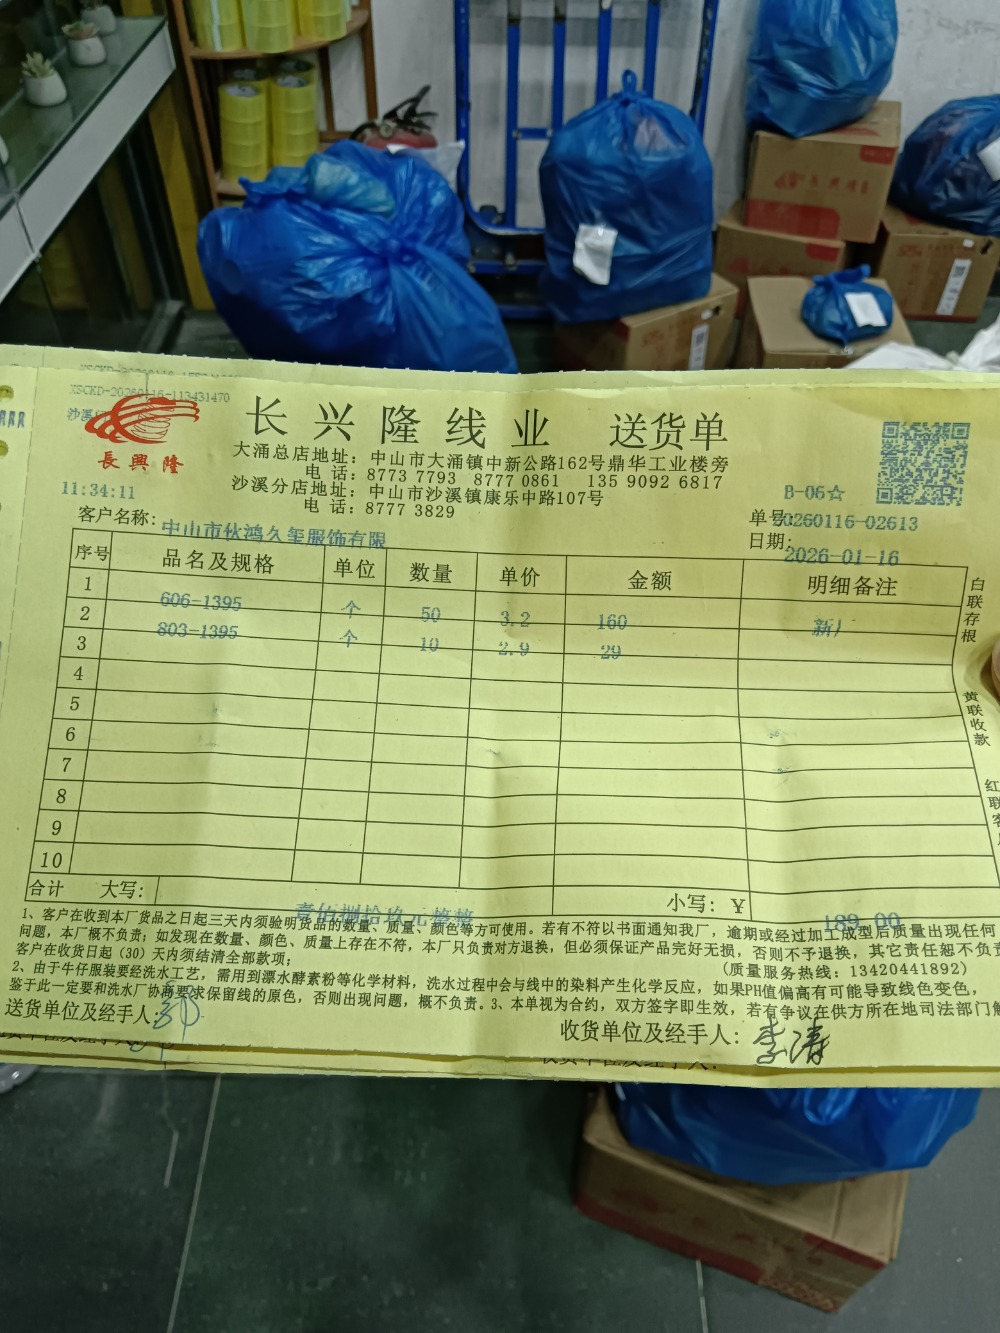 XSCKD-20260116-113431470
沙溪
長興隆
长兴隆线业 送货单
大涌总店地址：中山市大涌镇中新公路162号鼎华工业楼旁
电 话：8773 7793 8777 0861 135 9092 6817
沙溪分店地址：中山市沙溪镇康乐中路107号
电 话：8777 3829
11:34:11
B-06☆
客户名称：中山市伙鸿久玺服饰有限
单号：20260116-02613
日期：2026-01-16
序号 品名及规格 单位 数量 单价 金额 明细备注
1 606-1395 个 50 3.2 160 新厂
2 803-1395 个 10 2.9 29
3
4
5
6
7
8
9
10
合计 大写：壹佰捌拾玖元整 小写：￥189.00
1、客户在收到本厂货品之日起三天内须验明货品的数量、质量、颜色等方可使用。若有不符以书面通知我厂，逾期或经过加工成型后质量出现任何
问题，本厂概不负责；如发现在数量、颜色、质量上存在不符，本厂只负责对方退换，但必须保证产品完好无损，否则不予退换，其它责任恕不负责
客户在收货日起（30）天内须结清全部款项； （质量服务热线：13420441892）
2、由于牛仔服装要经洗水工艺，需用到漂水酵素粉等化学材料，洗水过程中会与线中的染料产生化学反应，如果PH值偏高有可能导致线色变色，
鉴于此一定要和洗水厂协商要求保留线的原色，否则出现问题，概不负责。3、本单视为合约，双方签字即生效，若有争议在供方所在地司法部门解
送货单位及经手人：
收货单位及经手人：李涛
白联存根
黄联收款
红联客